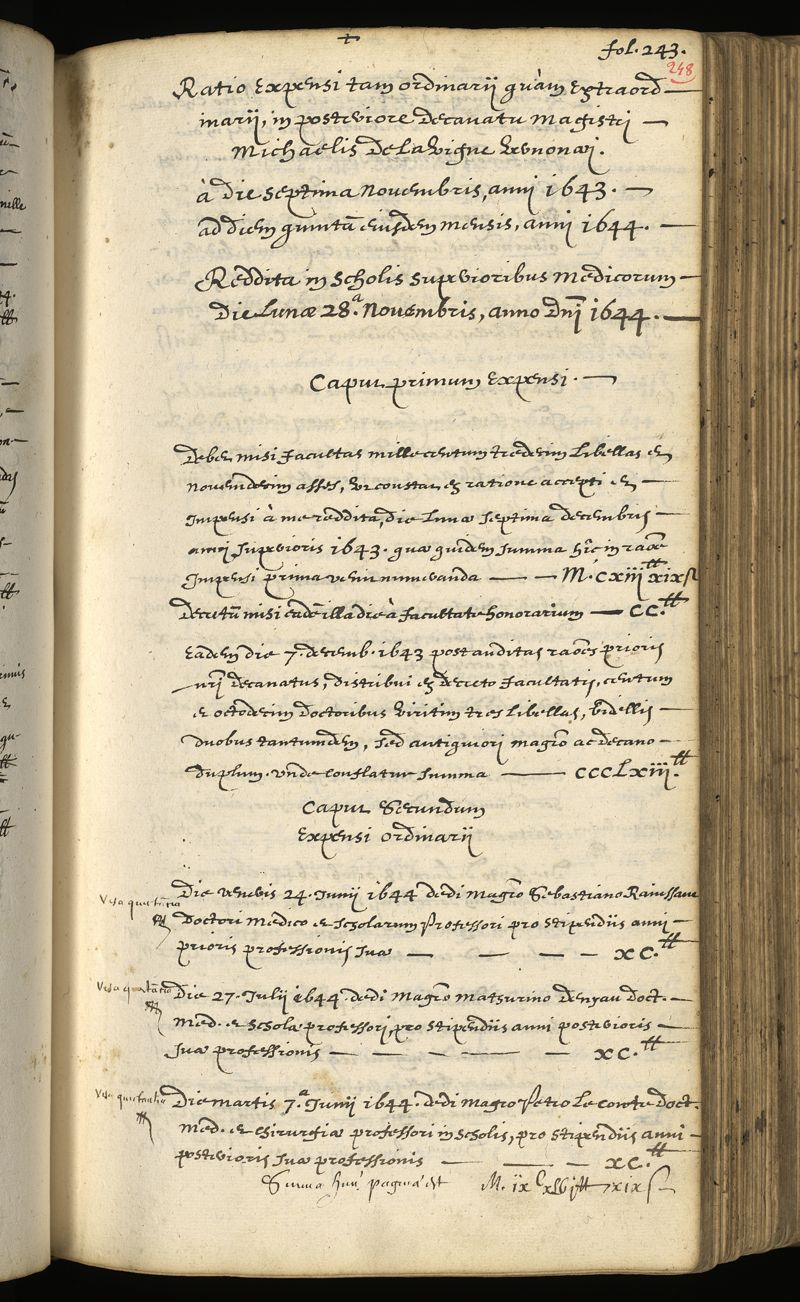 fol. 243.
248
Ratio Expensi tam ordinarii quàm Extraord
inarii, in posteriore Decanatu Magistri
Michaelis De La Vigne Vernonæi.
à Die septima Novembris, anni 1643.
ad diem quintã eiusdem mensis, anni 1644.
Reddita in Scholis superioribus Medicorum
Die Lunæ 28.a Novembris, anno Dni 1644.
Caput primum Expensi.
Debet misi facultas mille centum tredecim Libellas et
novemdecim asses, ut constat ex ratione accepti et
Impensi à me reddita, die Lunæ septima decembris
anni superioris 1643. quæ quidem summa hîc in raõe
Impensi prima venit numeranda M. CXIII tt XIX s
Decretũ misi eadẽ illa die à facultate honorarium CC. tt
Eadem die 7. decemb. 1643 post auditas raões prioris
nri Decanatus, distribui ex decreto facultatis, centum
et octodecim doctoribus viritim tres Libellas, bidellis
duobus tantumdem, sed antiquiori magro ac decano
duplum. unde conflatur summa CCCLXIII. tt
Caput Secundum
Expensi ordinarii
Die veneris 24. Junii 1644 dedi magro Sebastiano Rainssant
Doctori Medico et Scholarum Professori pro stipendiis anni
prioris professionis suæ XC. tt
Visa quictãcia
Die 27. Julii 1644. dedi Magro Matsurino Denyau doct.
Med. et scholæ professori, pro stipendiis anni posterioris
suæ professionis XC. tt
Visa quictãcia
Die martis 7.a Junii 1644. dedi Magro Petro Le Conte Doct.
Med. et chirurgiæ professori in scholis, pro stipendiis anni
posterioris suæ professionis XC. tt
Visa quictantia
Summa huiʼ paginæ est M. IX C XLVI tt XIX s